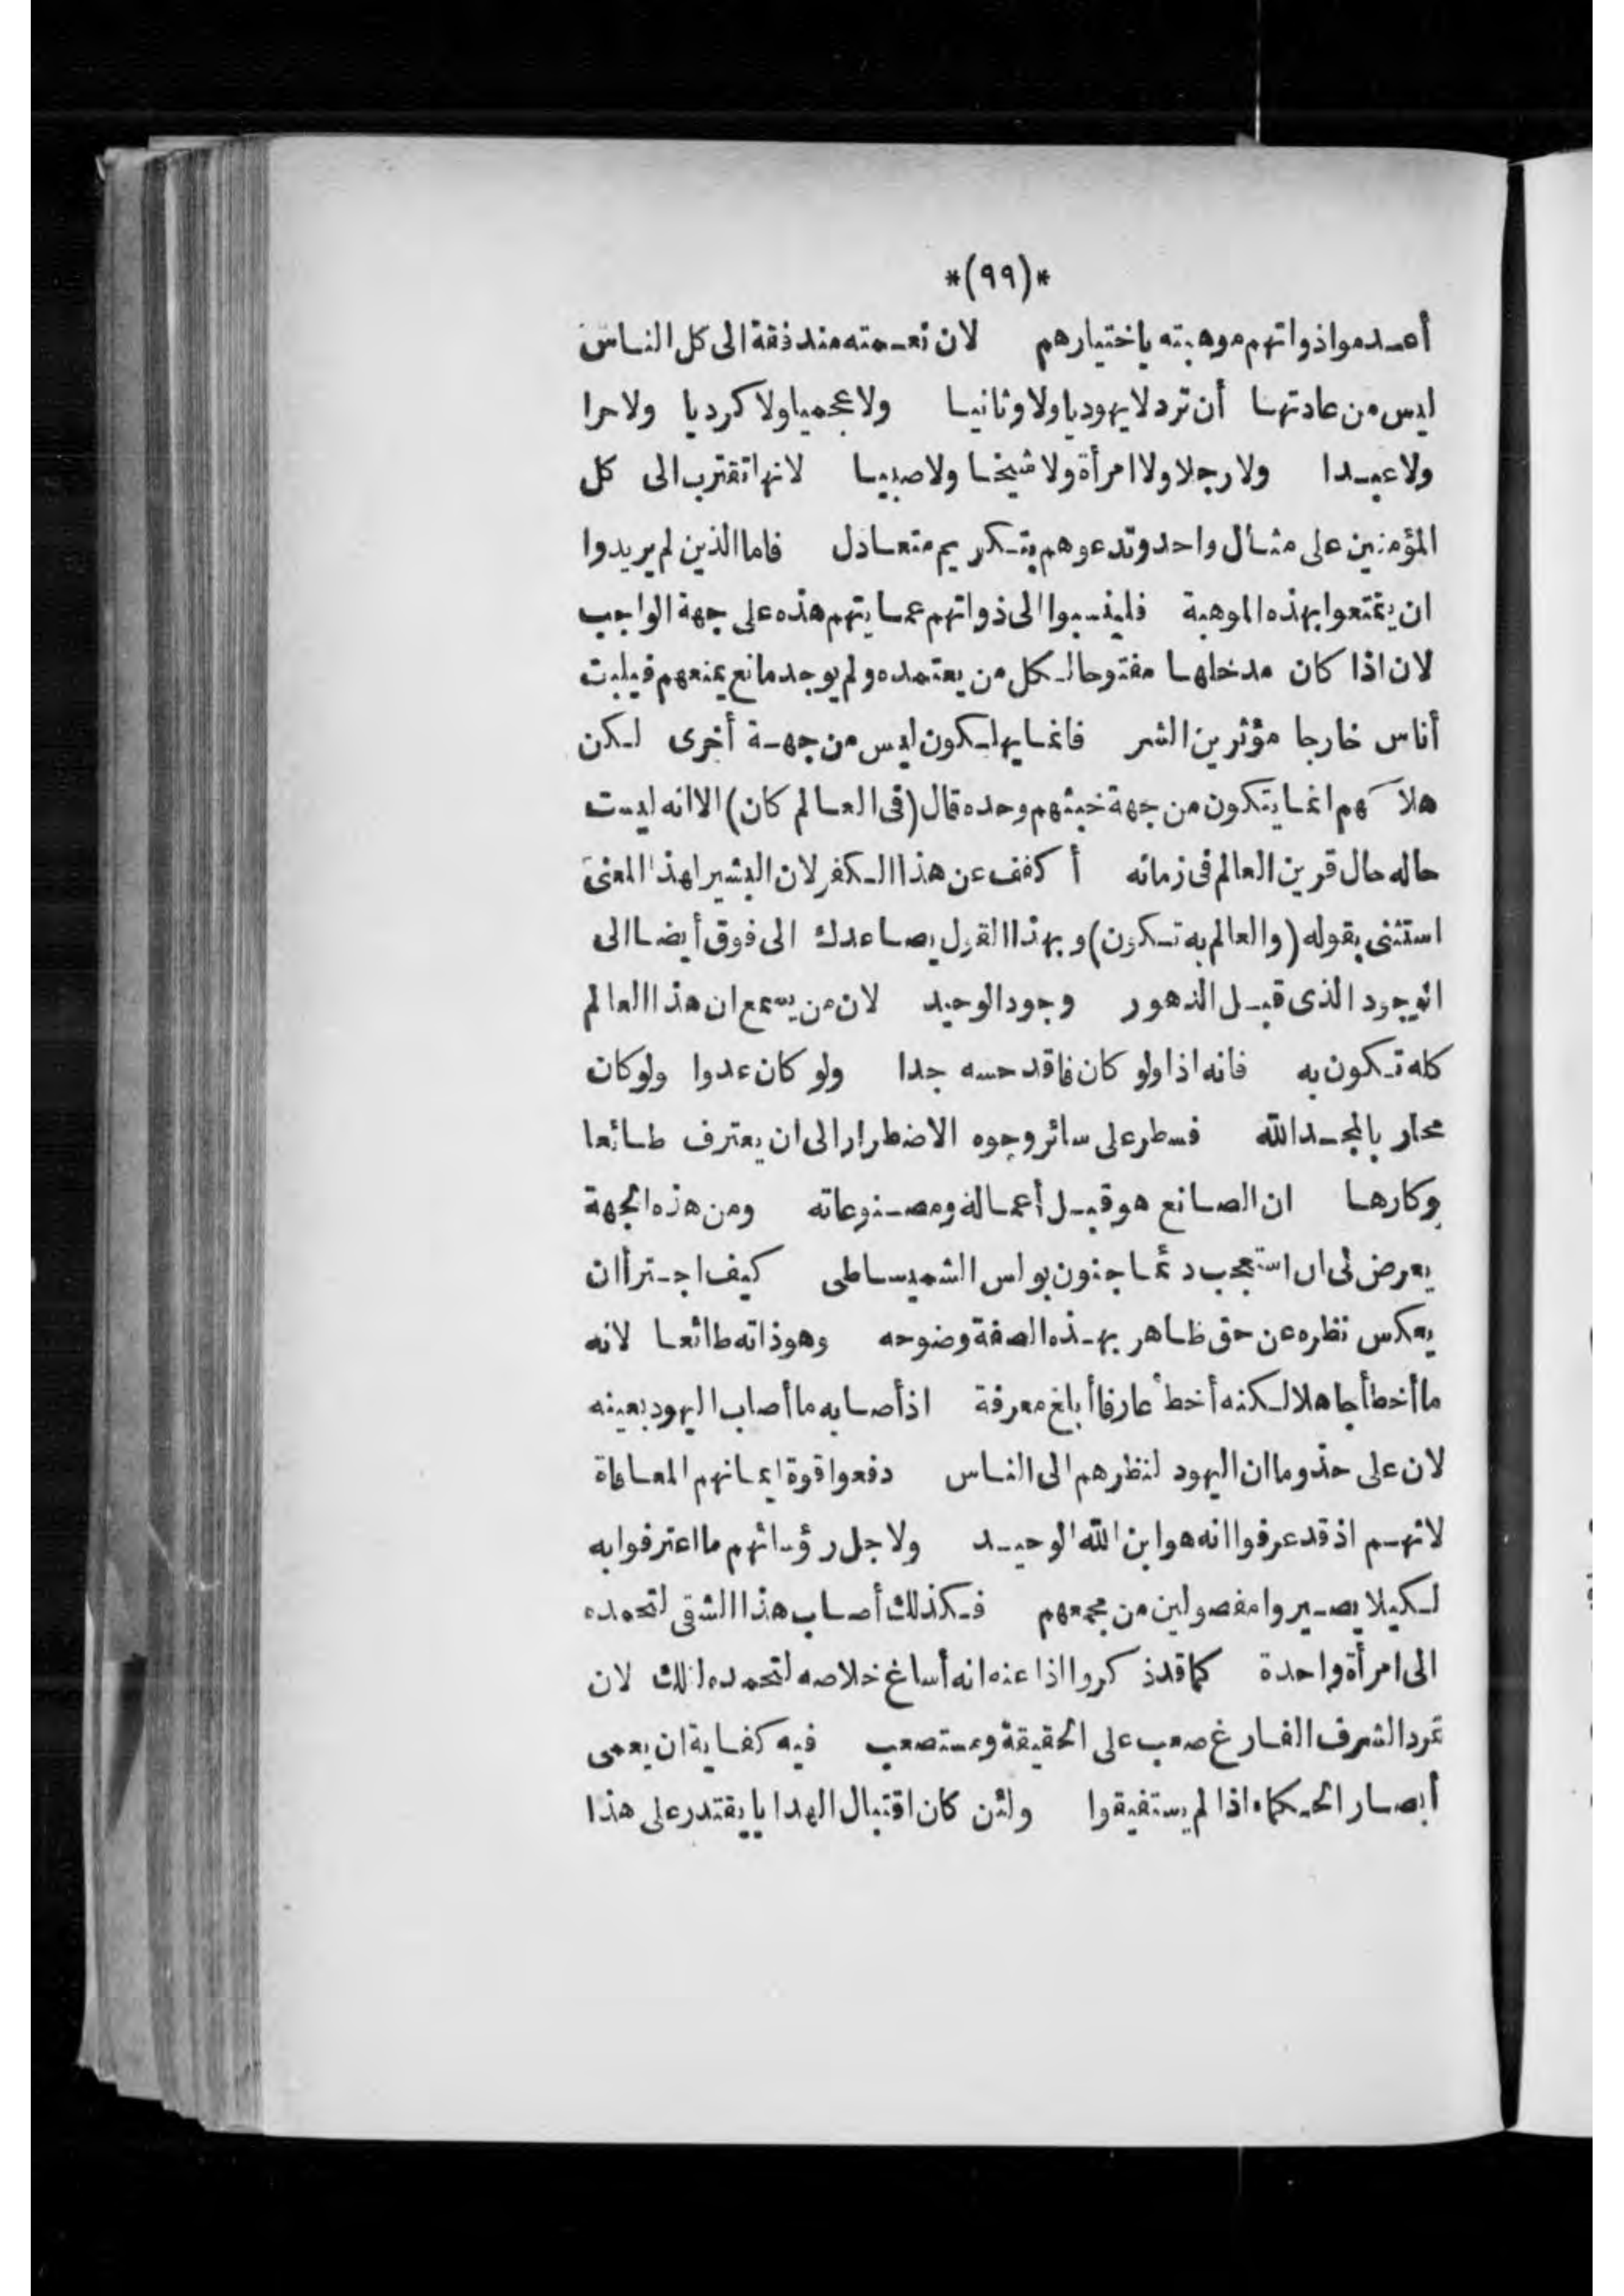 *(٩٩)*
أعدموا ذواتهم موهبته باختيارهم لان نعمته مندفقة الى كل الناس
ليس من عادتها أن ترد لا يهوديا ولا وثانيا ولا عجميا ولا كرديا ولا حرا
ولا عبدا ولا رجلا ولا امرأة ولا شيخا ولا صبيا لانها تقترب الى كل
المؤمنين على مثال واحد وتدعوهم بتكريم متعادل فاما الذين لم يريدوا
ان يتمتعوا بهذه الموهبة فلينسبوا الى ذواتهم عمايتهم هذه على جهة الواجب
لان اذا كان مدخلها مفتوحا لكل من يعتمده ولم يوجد مانع يمنعهم فيلبث
أناس خارجا مؤثرين الشر فانما يهلكون ليس من جهة أخرى لكن
هلاكهم انما يتكون من جهة خبثهم وحده قال (فى العالم كان) الا انه ليست
حاله حال قرين العالم فى زمانه أكفف عن هذا الكفر لان البشير لهذا المعنى
استثنى بقوله (والعالم به تكون) وبهذا القول يصاعدك الى فوق أيضا الى
الوجود الذى قبل الدهور وجود الوحيد لان من يسمع ان هذا العالم
كله تكون به فانه اذا ولو كان فاقد حسه جدا ولو كان عدوا ولو كان
محاربا لمجد الله فسطر على سائر وجوه الاضطرار الى ان يعترف طائعا
وكارها ان الصانع هو قبل أعماله ومصنوعاته ومن هذه الجهة
يعرض لى ان استعجب دئما جنون بولس الشميساطى كيف اجترأ ان
يعكس نظره عن حق ظاهر بهذه الصفة وضوحه وهو ذاته طائعا لانه
ما أخطأ جاهلا لكنه أخطأ عارفا أبلغ معرفة اذ أصابه ما أصاب اليهود بعينه
لان على حذو ما ان اليهود لنظرهم الى الناس دفعوا قوة ايمانهم المعافاة
لانهم اذ قد عرفوا انه هو ابن الله الوحيد ولاجل رؤسائهم ما اعترفوا به
لكيلا يصيروا مفصولين من مجمعهم فكذلك أصاب هذا الشقى لتحمده
الى امرأة واحدة كما قد ذكروا اذا عنه انه أساغ خلاصه لتحمده لتلك لان
تمرد الشرف الفارغ صعب على الحقيقة ومستصعب فيه كفاية ان يعمى
أبصار الحكماء اذا لم يستفيقوا ولئن كان اقتبال الهدايا يقتدر على هذا